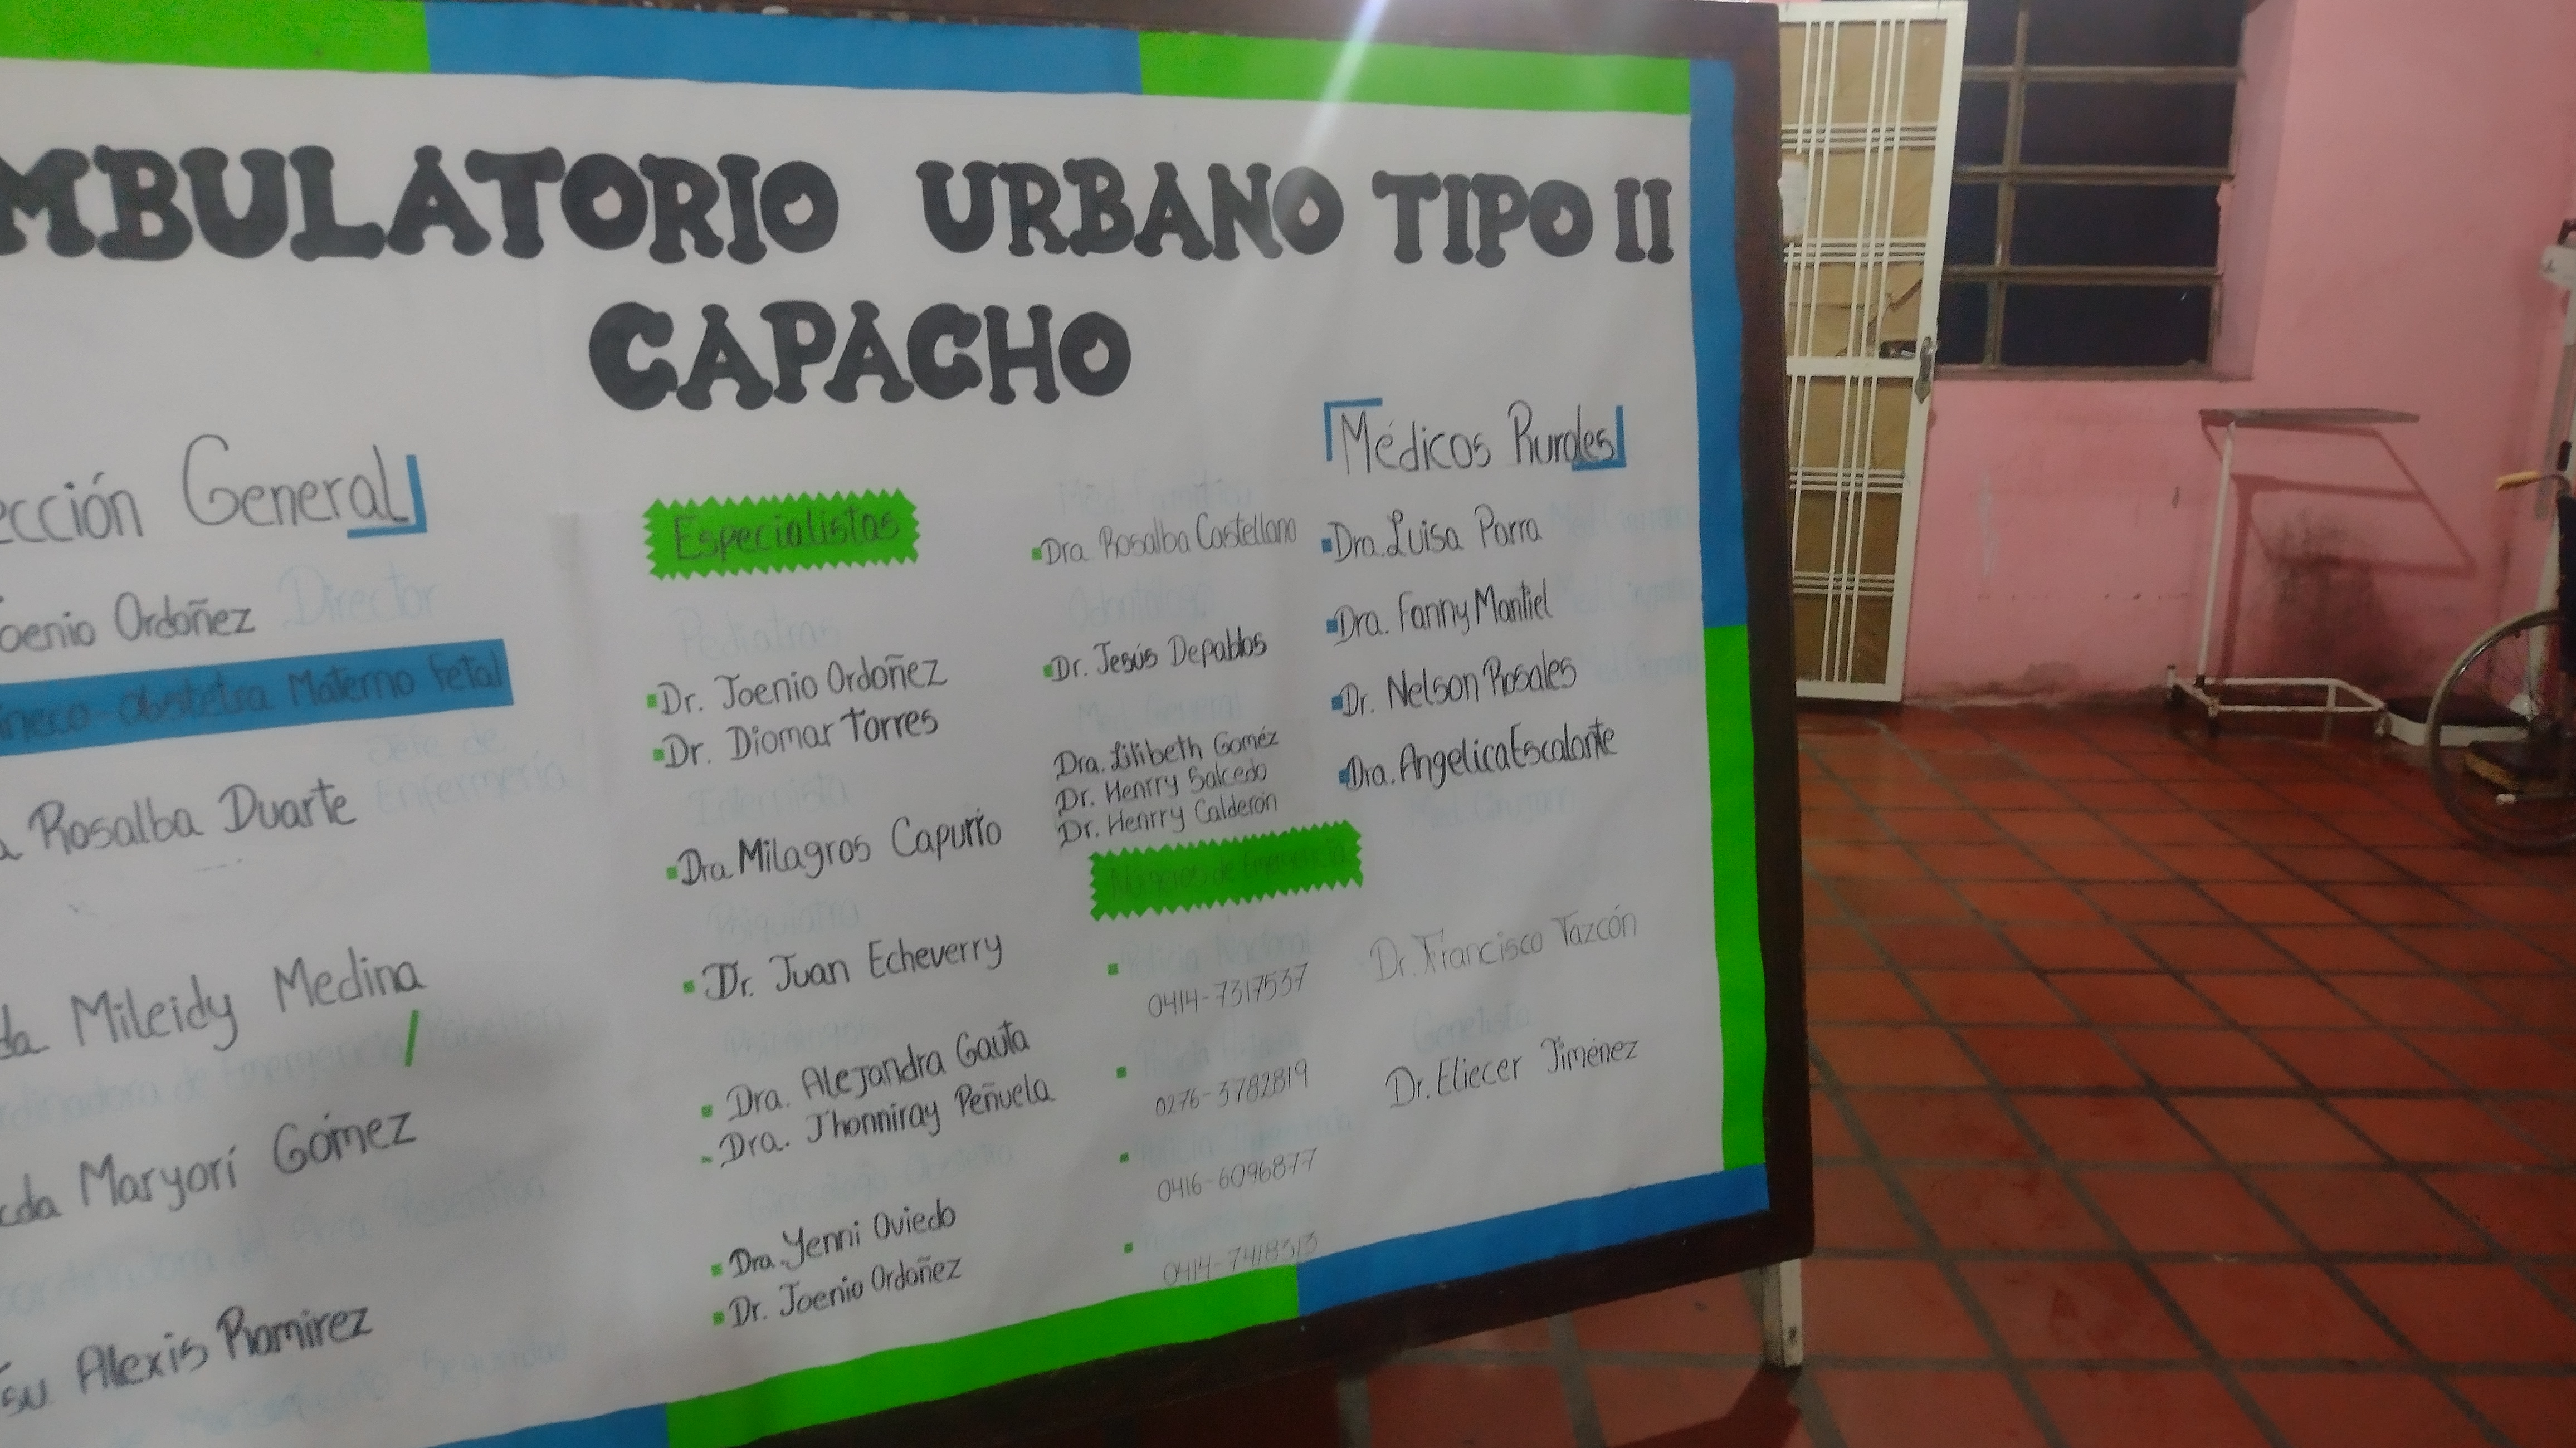 MBULATORIO URBANO TIPO II
CAPACHO
ección General
oenio Ordoñez Director
ineco-obstetra Materno Fetal
Jefe de
Enfermería
a Rosalba Duarte
da Mileidy Medina
cda Maryorí Gómez
su Alexis Ramirez
Especialistas
Pediatras
Dr. Joenio Ordoñez
Dr. Diomar Torres
Internista
Dra Milagros Capurro
Psiquiatra
Dr. Juan Echeverry
Dra. Alejandra Gauta
Dra. Jhonniray Peñuela
Dra. Yenni Oviedo
Dr. Joenio Ordoñez
Dra Rosalba Castellano
Dr. Jesús Depablos
Med. General
Dra. Lilibeth Goméz
Dr. Henrry Salcedo
Dr. Henrry Calderón
Números de Emergencia
0414-7317537
0276-3782819
0416-6096877
0414-7418313
Médicos Rurales
Dra. Luisa Parra
Dra. Fanny Montiel
Dr. Nelson Rosales
Dra. Angelica Escalante
Dr. Francisco Tazcón
Genetista
Dr. Eliecer Jiménez